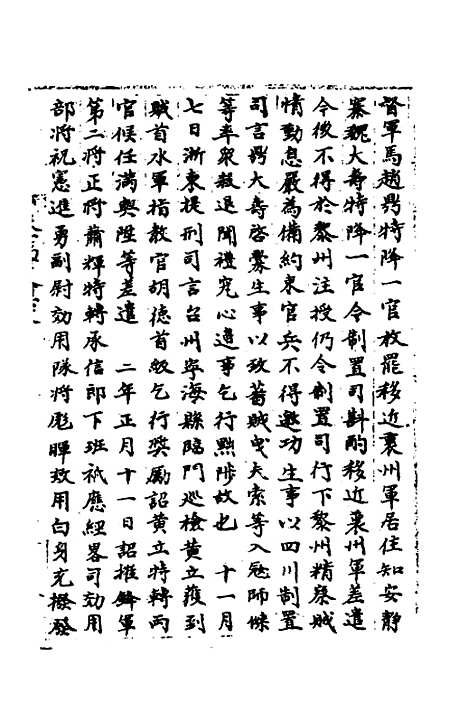 督軍馬趙鼎特降一官放罷移近裏州軍居住知安靜
寨魏大壽特降一官令制置司斟酌移近裏州軍差遣
今後不得於黎州注授仍令制置司行下黎州精察賊
情動息嚴為備約束官兵不得邀功生事以四川制置
司言鼎大壽啓釁生事以致蕃賊曳失索等入寇師
等率衆殺退聞禮究心邊事乞行黜陟故也 十一月
七日浙東提刑司言台州寧海縣臨門巡檢黄立獲到
賊首水軍指教官胡德首級乞行獎勵詔黄立特轉兩
官候任滿與陞等差遣 二年正月十一日詔摧鋒軍
第二將正將蕭輝特轉承信郎下班祇應經畧司効用
部將祝憲進勇副尉効用隊將彪暉效用白身充撥發